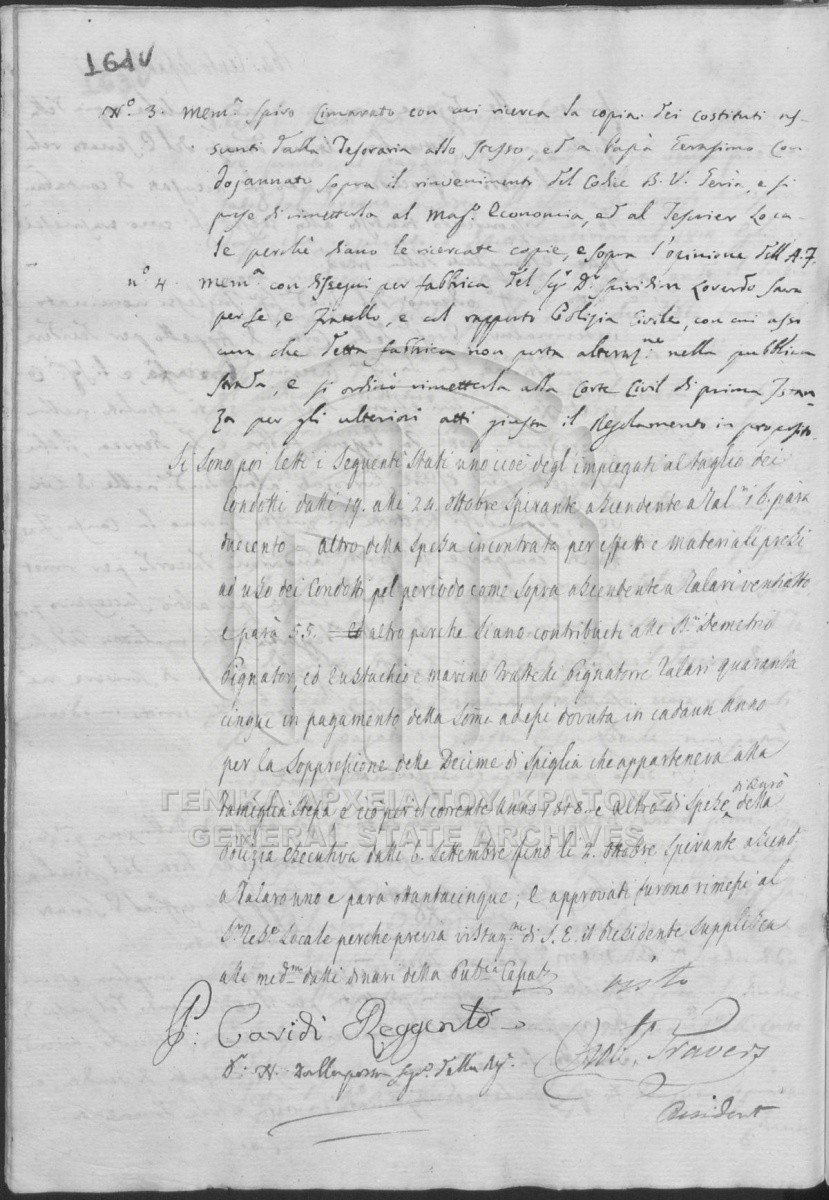 161v
N.º 3. Mem.ª Spiro Cimarato con cui ricerca la copia dei costituti as-
sunti dalla Tesoraria allo stesso, ed a Papà Gerasimo Con
dojannato sopra il rinvenimento del Codic B. V. e si
prese di rimetterla al Mag.º Economia, ed al Tesorier Loca
le perchè diano le ricercate copie, e sopra l'opinione dell' A. F.
n.º 4. Mem.ª con disegni per fabbrica del Sig.r D.r Spiridion Loverdo
per se, e Fratello, e col rapporto Polizia Civile, con cui assi
cura che detta fabbrica non porta alteraz.ne nella pubblica
strada, e si ordinò rimetterla alla Corte Civil di prima Istan-
za per gli ulteriori atti giusta il Regolamento in proposito.
Si sono poi letti i seguenti stati uno cioè degl' impiegati al taglio dei
Condotti dalli 19. alli 24. Ottobre spirante ascendente a Tal.ri 16. parà
duecento = altro della spesa incontrata per effetti e materiali presi
ad uso dei Condotti pel periodo come sopra ascendente a Talari ventiotto
e parà 55. = altro perche siano contribuiti alli S.ri Demetrio
Pignator, ed Eustachio e Marino Fratelli Pignatorre Talari quaranta
cinque in pagamento della somma ad essi dovuta in cadaun Anno
per la soppressione delle Decime di Spiglia che apparteneva alla
famiglia Stefa e ciò per il corrente Anno 1818. e altro di spese di Burò della
ΓΕΝΙΚΑ ΑΡΧΕΙΑ ΤΟΥ ΚΡΑΤΟΥΣ
GENERAL STATE ARCHIVES
Polizia esecutiva dalli 6. Settembre fino li 2. Ottobre spirante ascend.
a Talaro uno e parà ottantacinque; e approvati furono rimessi al
S.r Locale perche previa vistaz.ne di S. E. il Presidente supplisca
alli med.mi dalli dinari della Pub.ca Cassa
visto
P: Caridi Reggente
Travers
Resident